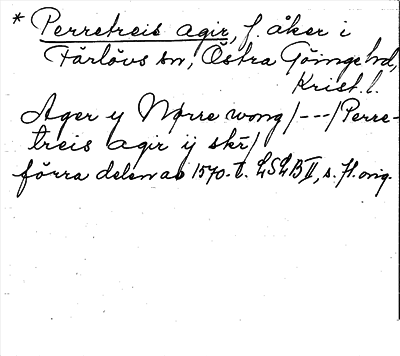 * Perretreis agir, f. åker i
Färlövs sn, Östra Göinge hd,
Krist. l.
Ager y Nørre wong /---/ Perre-
treis agir ij skr̄ /
förra delen av 1570-t. LSLB II, s. 71. orig.